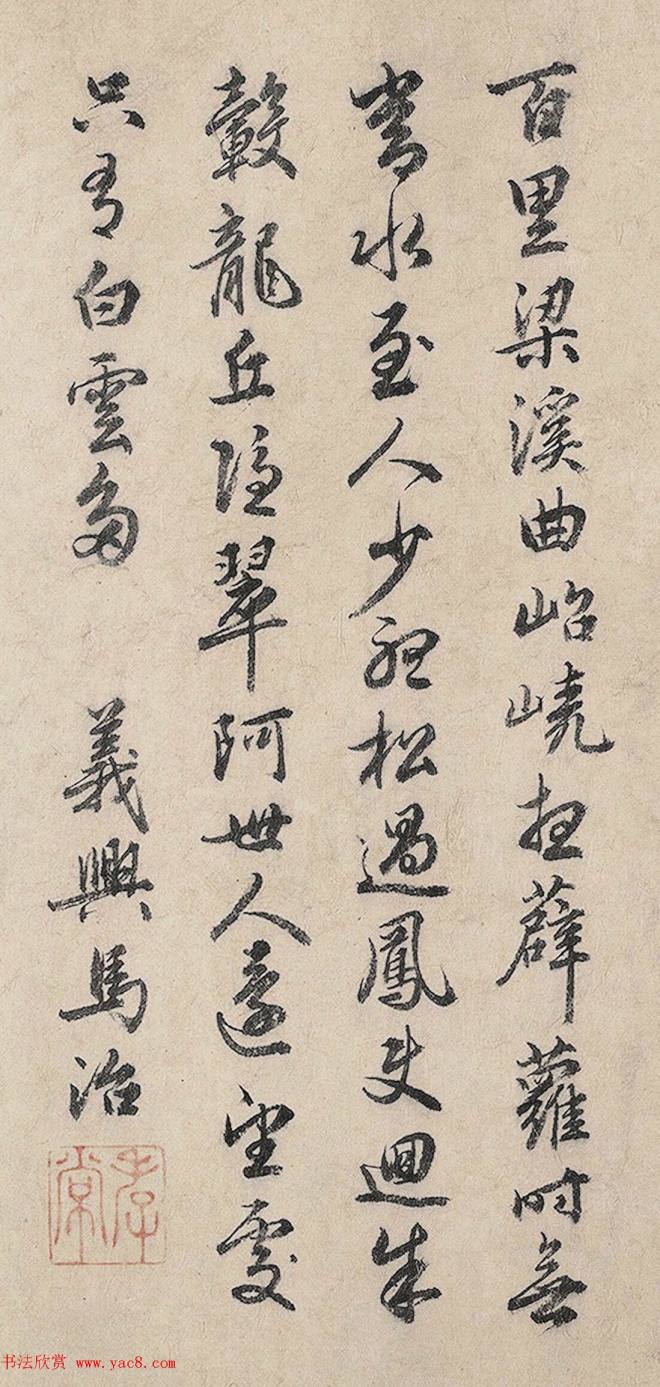 百里梁溪曲岧嶢薜蘿時無
水至人少聽松過鳳吏迴朱
轂龍丘隱翠阿世人遙望處
只有白雲多 義興馬治
孝常
书法欣赏 www.yac8.com